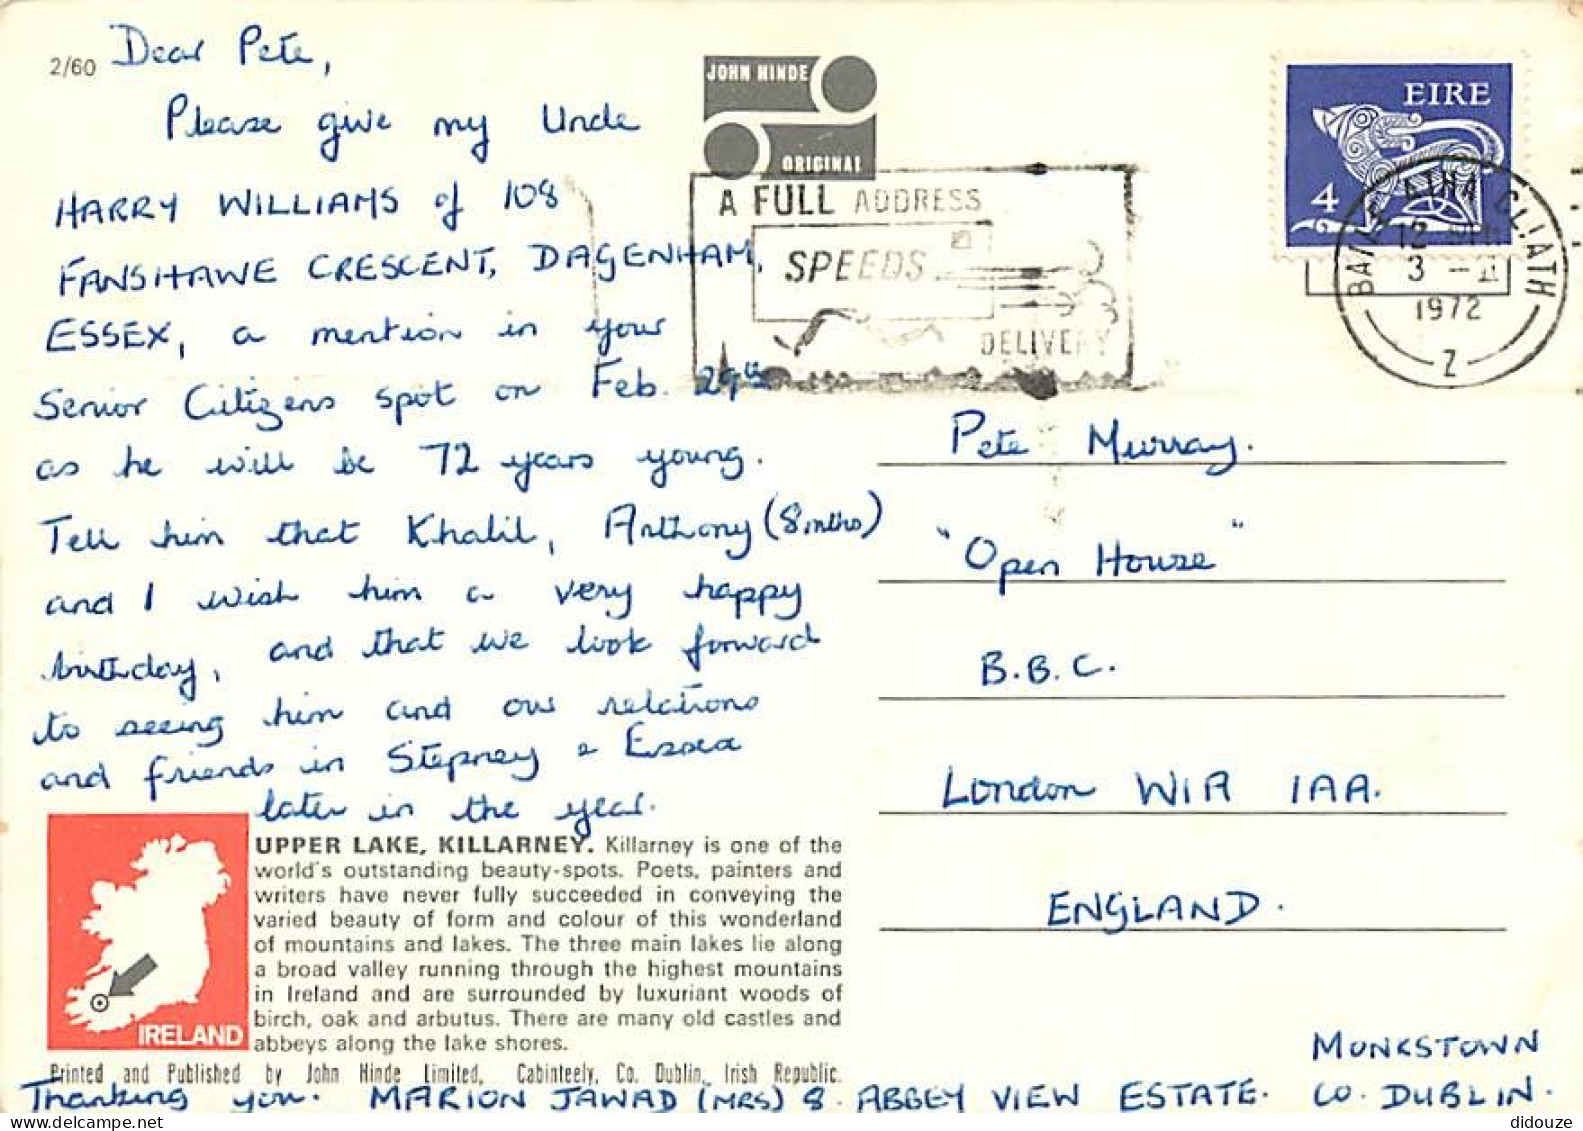 2/60
Dear Pete,
Please give my Uncle
HARRY WILLIAMS of 108
FANSHAWE CRESCENT, DAGENHAM,
ESSEX, a mention in your
Senior Citizens spot on Feb. 29th
as he will be 72 years young.
Tell him that Khalil, Anthony (8 mths)
and I wish him a very happy
birthday, and that we look forward
to seeing him and our relations
and friends in Stepney & Essex
later in the year.
JOHN HINDE
ORIGINAL
A FULL ADDRESS
SPEEDS
DELIVERY
EIRE
4
BAILE ATHA CLIATH
12
3 - II
1972
Z
Pete Murray.
"Open House"
B.B.C.
London W1A 1AA.
ENGLAND.
IRELAND
UPPER LAKE, KILLARNEY. Killarney is one of the
world's outstanding beauty-spots. Poets, painters and
writers have never fully succeeded in conveying the
varied beauty of form and colour of this wonderland
of mountains and lakes. The three main lakes lie along
a broad valley running through the highest mountains
in Ireland and are surrounded by luxuriant woods of
birch, oak and arbutus. There are many old castles and
abbeys along the lake shores.
Printed and Published by John Hinde Limited, Cabinteely, Co. Dublin, Irish Republic.
Thanking you. MARION JAWAD (MRS) 8. ABBEY VIEW ESTATE.
MONKSTOWN
CO. DUBLIN.
didouze